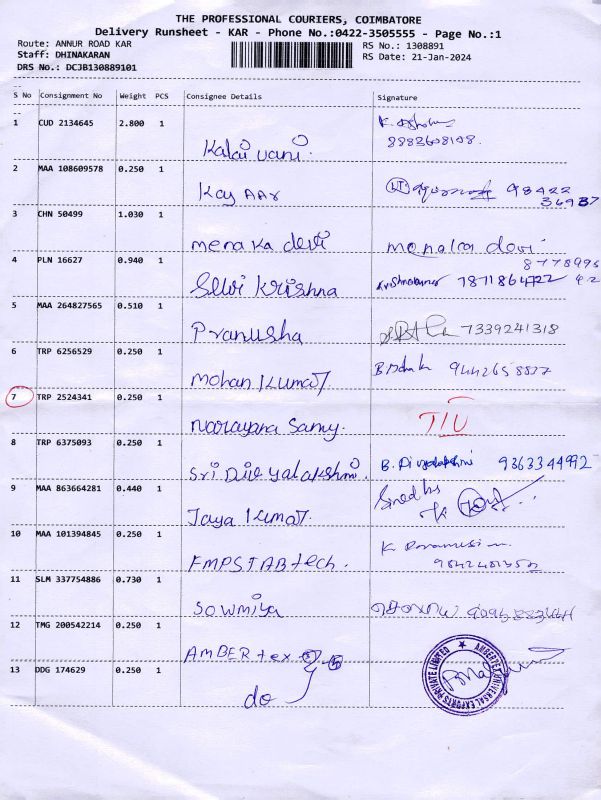 THE PROFESSIONAL COURIERS, COIMBATORE
Delivery Runsheet - KAR - Phone No.:0422-3505555 - Page No.:1
Route: ANNUR ROAD KAR
RS No.: 1308891
Staff: DHINAKARAN
RS Date: 21-Jan-2024
DRS No.: DCJB130889101
S No Consignment No Weight PCS Consignee Details Signature
1 CUD 2134645 2.800 1 Kalai vani.
2 MAA 108609578 0.250 1 Kay AAr 98422
3 CHN 50499 1.030 1 menaka devi
4 PLN 16627 0.940 1 Selvi Krishna
5 MAA 264827565 0.510 1 Pranusha 7339241318
6 TRP 6256529 0.250 1 mohan Kumar.
7 TRP 2524341 0.250 1 narayana Samy. TIU
8 TRP 6375093 0.250 1 Sri Divyalakshmi. B. Divyalakshmi 9363344992
9 MAA 863664281 0.440 1 Jaya Kumar.
10 MAA 101394845 0.250 1 FMPSTAB tech.
11 SLM 337754886 0.730 1 Sowmiya
12 TMG 200542214 0.250 1 AMBER tex
13 DDG 174629 0.250 1 do
AMBERTEX UNIVERSAL EXPORTS PRIVATE LIMITED